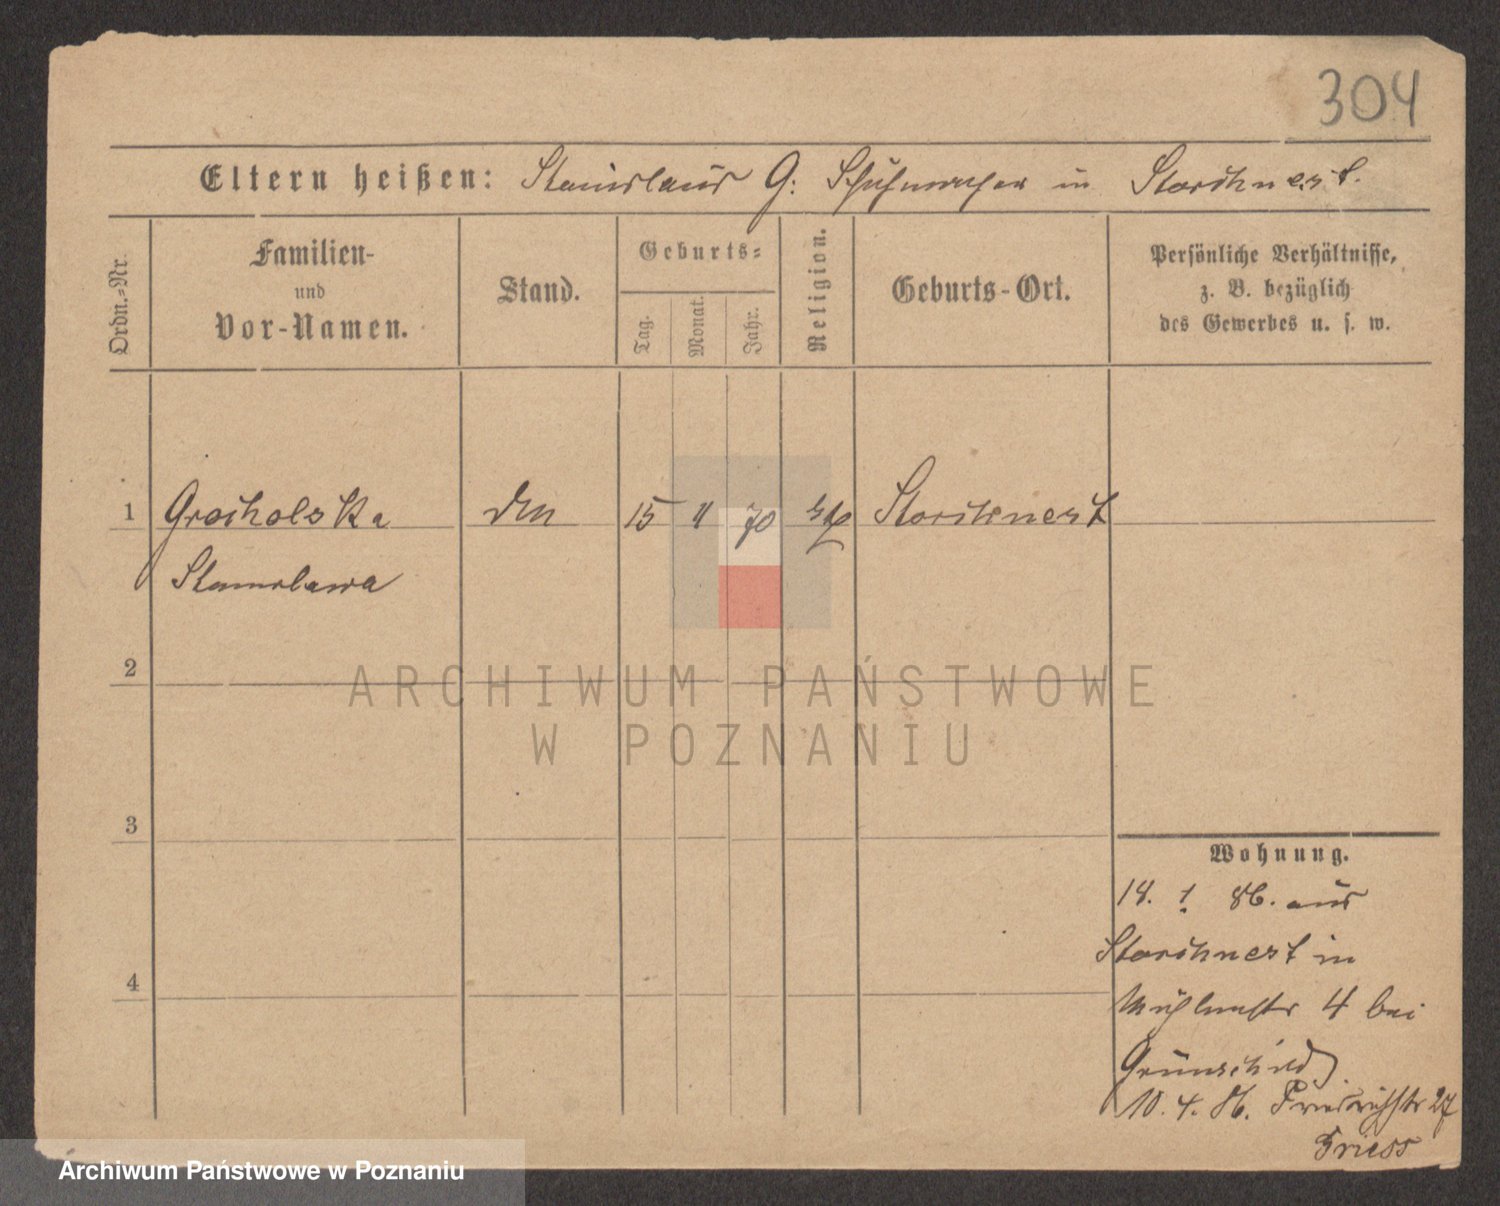 304
Eltern heißen: Stanislaus G: Schuhmacher in Storchnest.
Ordn.-Nr.
Familien-
und
Vor-Namen.
Stand.
Geburts-
Tag.
Monat.
Jahr.
Religion.
Geburts-Ort.
Persönliche Verhältnisse,
z. B. bezüglich
des Gewerbes u. s. w.
1 Grocholska 15 70 Storchnest
Stanislawa
2
3
4
Wohnung.
14. 1. 86. aus
Storchnest in
Mühlenstr 4 bei
Grünschild
10. 4. 86. Friedrichstr 27
Griess
ARCHIWUM PAŃSTWOWE
W POZNANIU
Archiwum Państwowe w Poznaniu